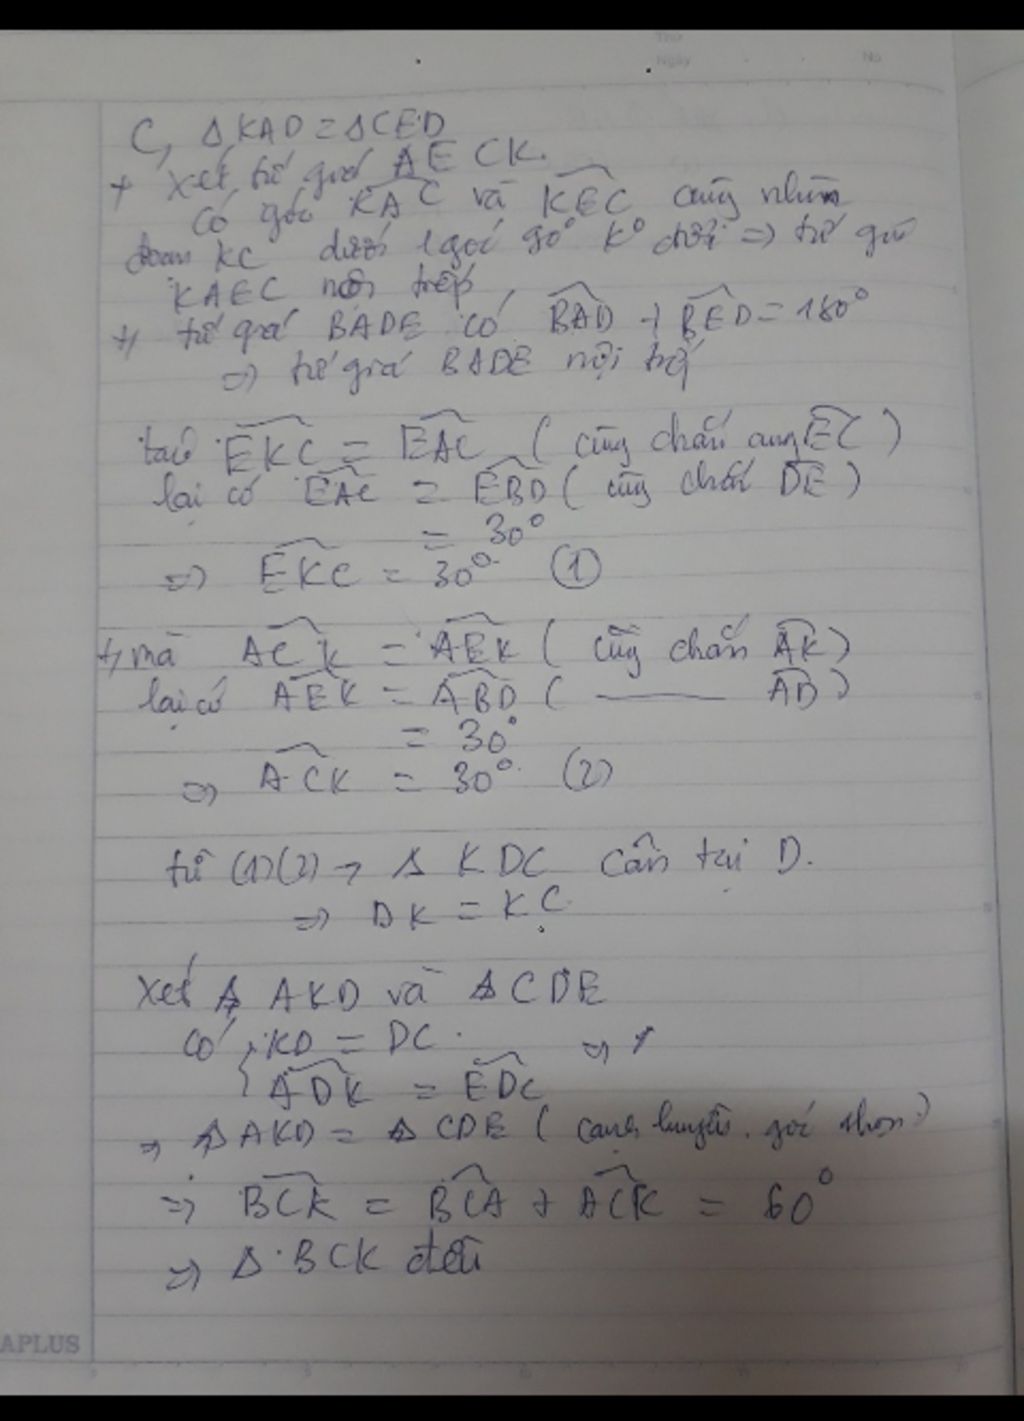 Thứ
Ngày No
C, Δ KAD = Δ CED
+ Xét tứ giác AECK.
Có góc KAC và KEC cùng nhìn
đoạn KC dưới 1 góc 90° k° đổi => tứ giác
KAEC nội tiếp
+, tứ giác BADE có BAD + BED = 180°
=> tứ giác BADE nội tiếp
ta có EKC = EAC ( cùng chắn cung EC )
lại có EAC = EBD ( cùng chắn DE )
= 30°
=> EKC = 30° (1)
+, mà ACK = AEK ( cùng chắn AK )
lại có AEK = ABD ( —— AD )
= 30°
=> ACK = 30° (2)
từ (1)(2) → Δ KDC cân tại D.
=> DK = KC
Xét Δ AKD và Δ CDE
có { KD = DC. =>
ADK = EDC
=> Δ AKD = Δ CDE ( cạnh huyền. góc nhọn )
=> BCK = BCA + ACK = 60°
=> Δ BCK đều
APLUS